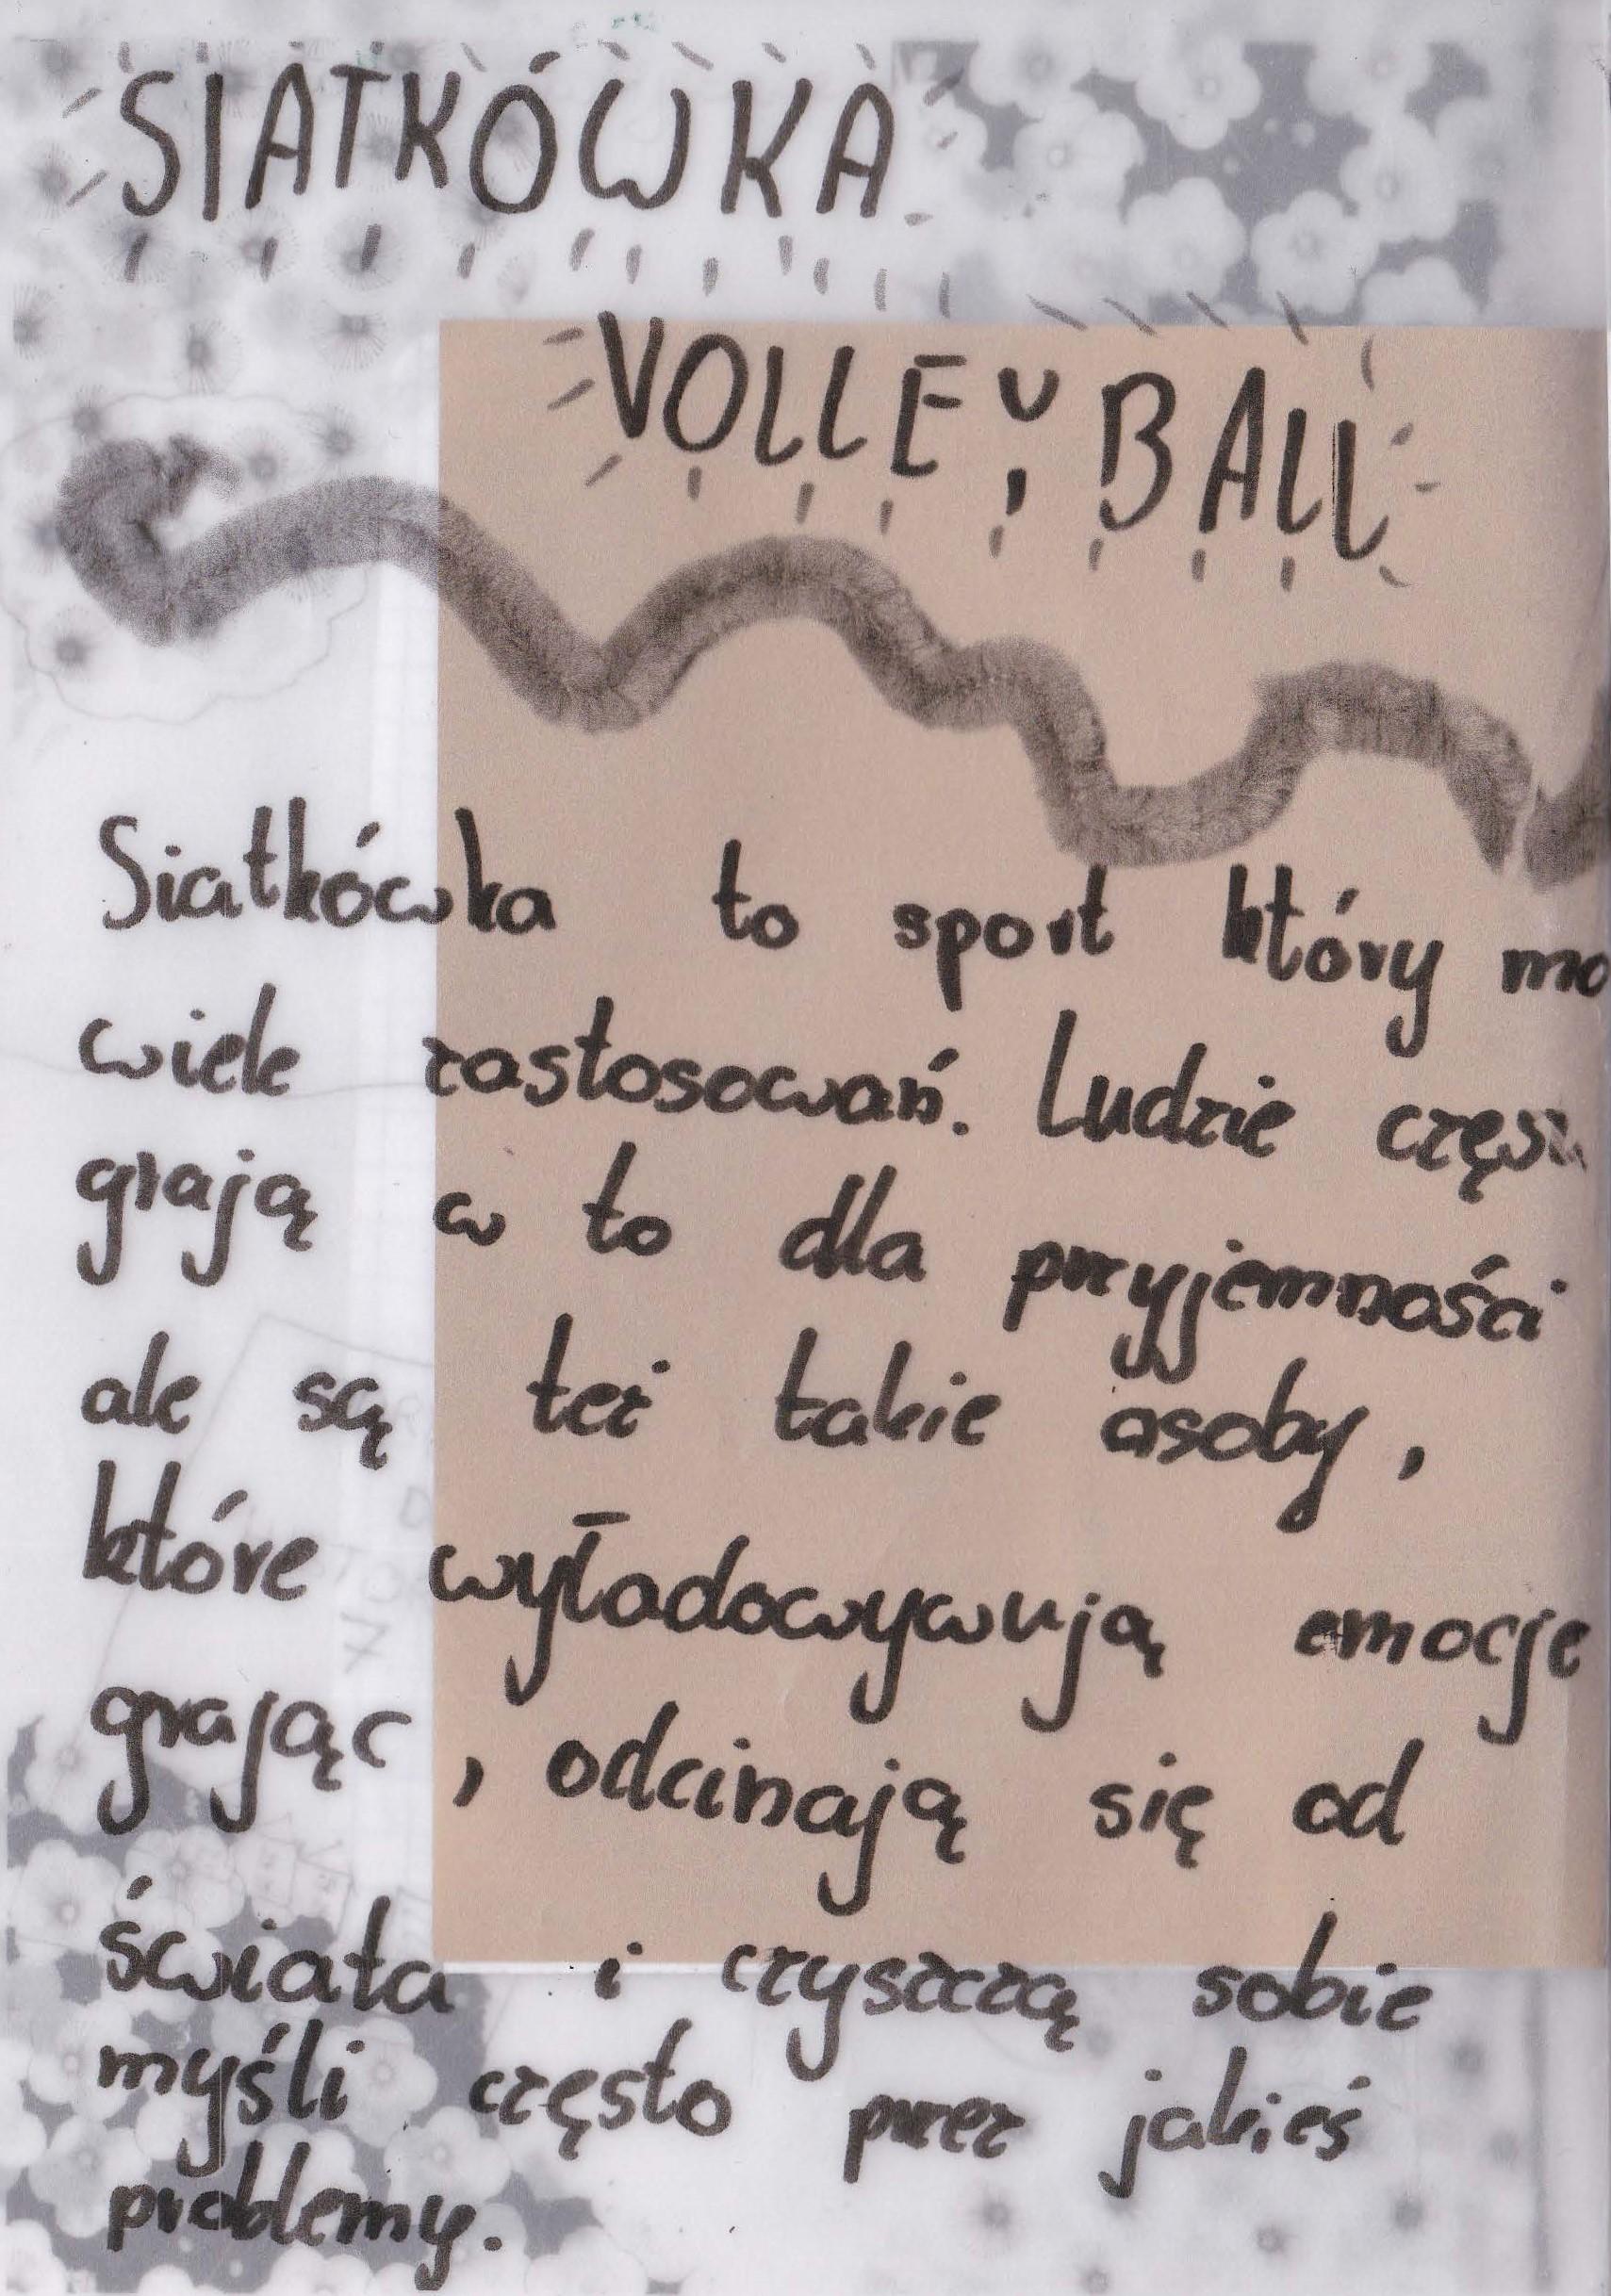 SIATKÓWKA
VOLLEYBALL
Siatkówka to sport który ma
wiele zastosowań. Ludzie częs
grają w to dla przyjemności
ale są też takie osoby,
które wyładowywują emocje
grając, odcinają się od
świata i czyszczą sobie
myśli często przez jakieś
problemy.